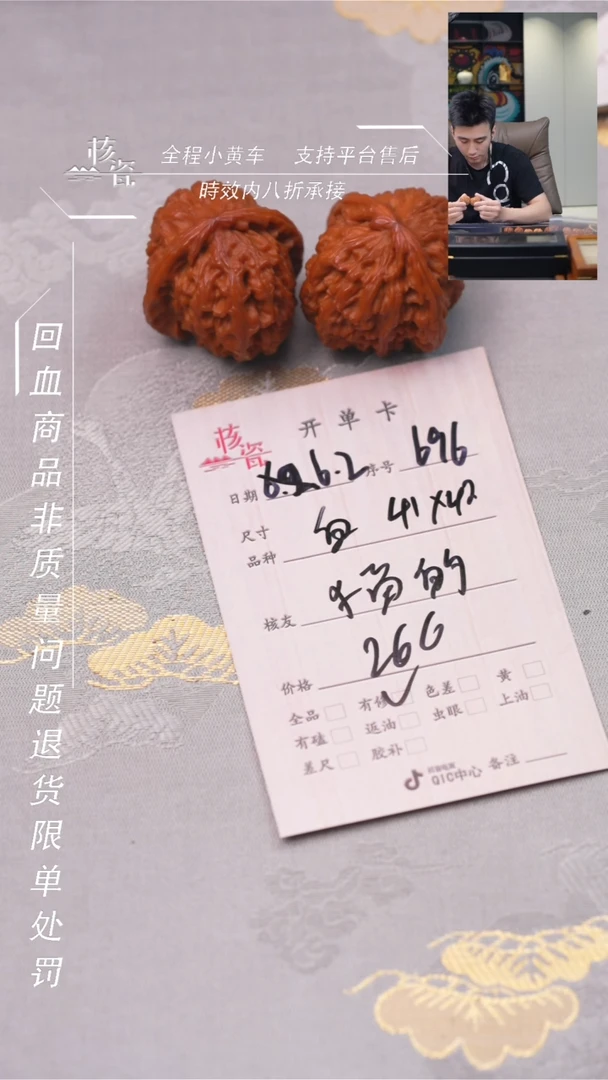 核瓷
全程小黄车 支持平台售后
時效内八折承接
回血商品非质量问题退货限单处罚
核瓷
开单卡
日期 序号 696
尺寸
品种 41×42
核友
价格 266
全品 有修 色差 黄
有磕 返油 虫眼 上油
差尺 胶补
抖音电商
QIC中心 备注